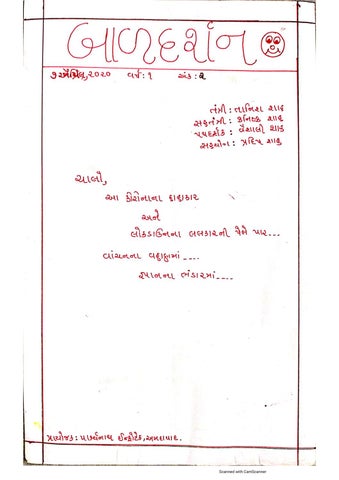 બાળદર્શન
૭ એપ્રિલ, ૨૦૨૦ વર્ષ : ૧ અંક : ૨
તંત્રી : તાનિશ શાહ
સહતંત્રી : કનિષ્ક શાહ
પથદર્શક : વૈશાલી શાહ
સહયોગ : પ્રદિપ શાહ
ચાલો,
આ કોરોનાના હાહાકાર
અને
લોકડાઉનના લલકારની પેલે પાર...
વાંચનના વહાણમાં ....
જ્ઞાનના ભંડારમાં....
પ્રાયોજક : પાર્શ્વનાથ ઈન્ફોટેક, અમદાવાદ.
Scanned with CamScanner